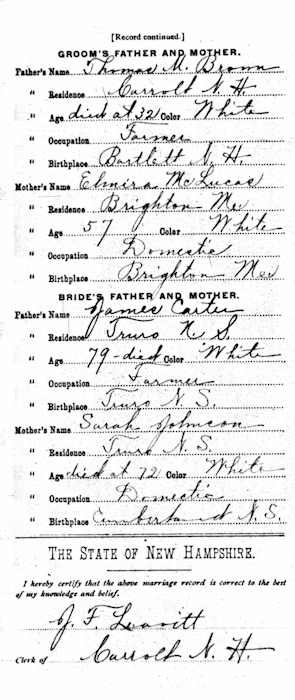 [Record continued.]
GROOM'S FATHER AND MOTHER.
Father's Name Thomas M. Brown
" Residence Carroll N. H.
" Age died at 32 Color White
" Occupation Farmer
" Birthplace Bartlett N. H
Mother's Name Elmira McLucas
" Residence Brighton Me
" Age 57 Color White
" Occupation Domestic
" Birthplace Brighton Me
BRIDE'S FATHER AND MOTHER.
Father's Name James Carter
" Residence Truro N. S
" Age 79-died Color White
" Occupation Farmer
" Birthplace Truro N. S.
Mother's Name Sarah Johnson
" Residence Truro N. S.
" Age died at 72 Color White
" Occupation Domestic
" Birthplace Cumberland N. S.
THE STATE OF NEW HAMPSHIRE.
I hereby certify that the above marriage record is correct to the best
of my knowledge and belief.
J. F. Leavitt
Clerk of Carroll N. H.